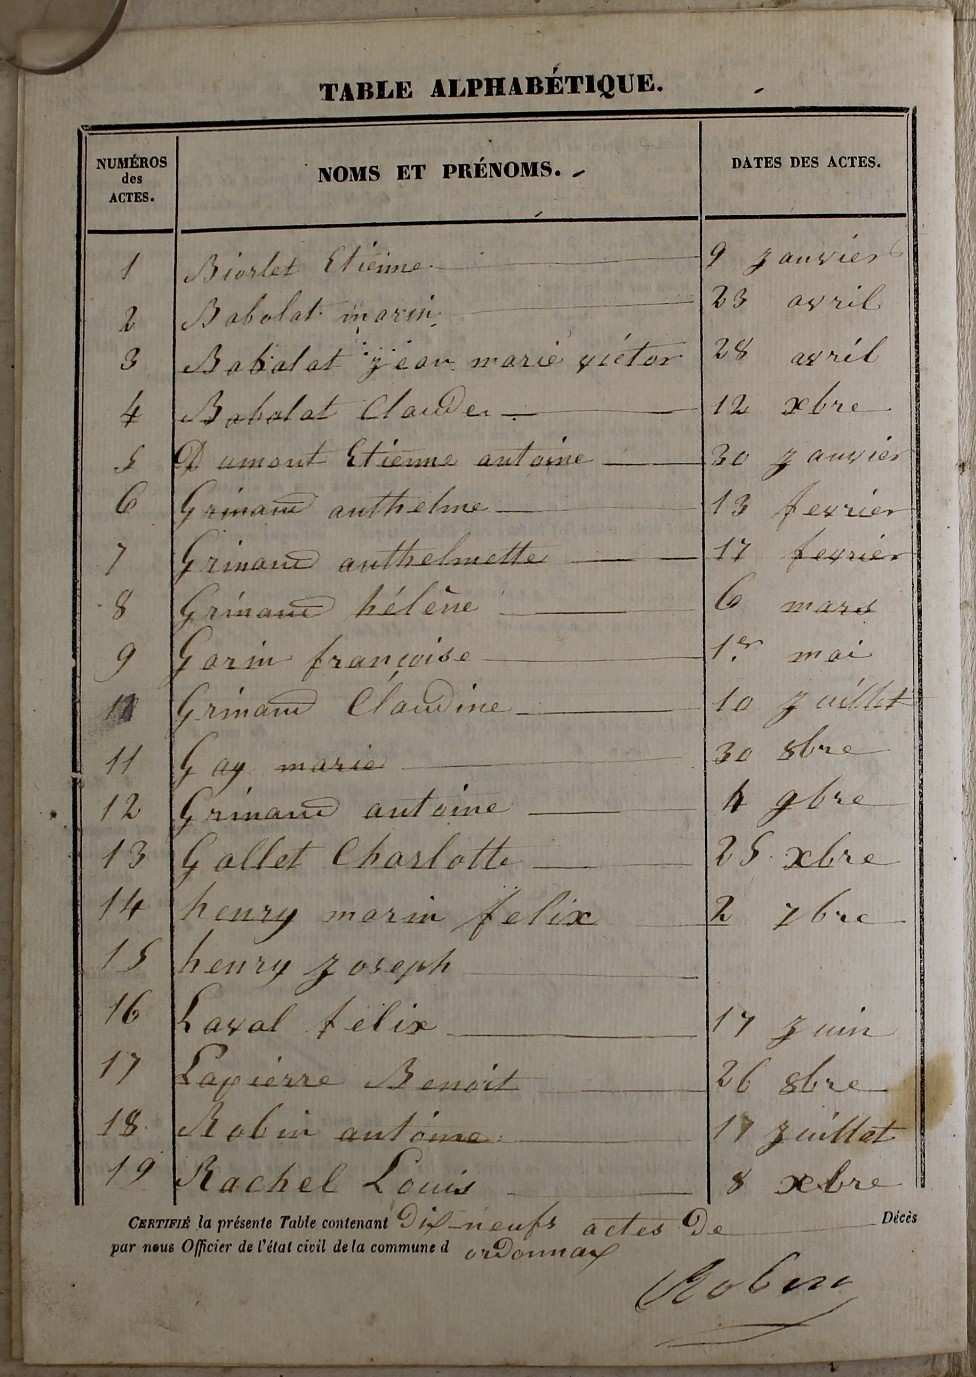 TABLE ALPHABÉTIQUE.
NUMÉROS des ACTES. NOMS ET PRÉNOMS. DATES DES ACTES.
1 Biorlet Etienne 9 janvier
2 Babolat marin 23 avril
3 Babolat jean marie victor 28 avril
4 Babolat Claude 12 xbre
5 Dumont Etienne antoine 30 janvier
6 Grinand anthelme 13 fevrier
7 Grinand anthelmette 17 fevrier
8 Grinand hélène 6 mars
9 Gorin françoise 1er mai
10 Grinand Claudine 10 juillet
11 Gay marie 30 8bre
12 Grinand antoine 4 9bre
13 Gallet Charlotte 25 xbre
14 henry marin felix 2 7bre
15 henry joseph
16 Laval felix 17 juin
17 Lapierre Benoit 26 8bre
18 Robin antoine 17 juillet
19 Rachel Louis 8 xbre
CERTIFIÉ la présente Table contenant Dix-neufs actes De Décès
par nous Officier de l'état civil de la commune d ordonnax
Robin